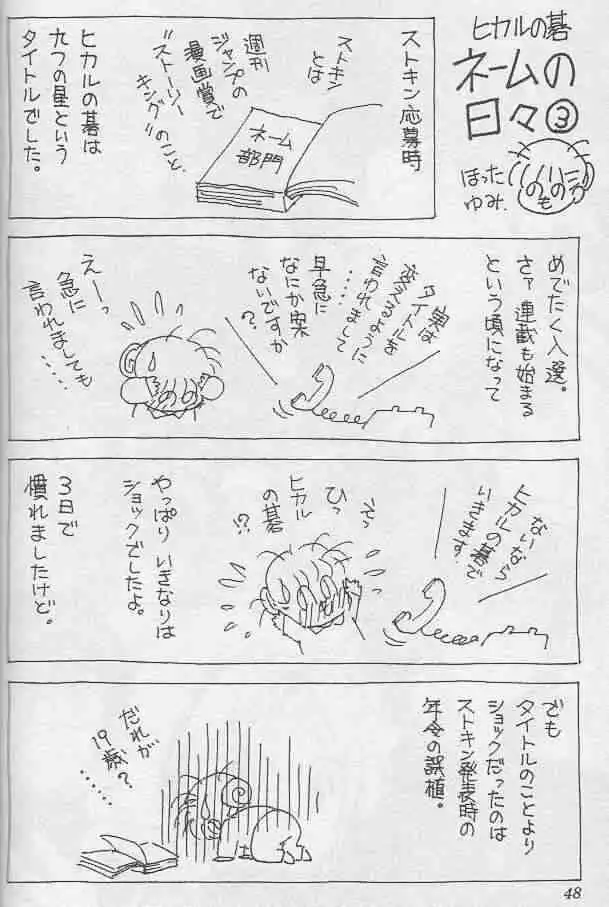 ヒカルの碁
ネームの
日々③
ほった
ゆみ.
ストキン応募時
ストキン
とは
週刊
ジャンプの
漫画賞で
"ストーリー
キング"のこと.
ネーム
部門
ヒカルの碁は
九つの星という
タイトルでした。
めでたく入選。
さァ連載も始まる
という頃になって
実は
タイトルを
変えるように
言われまして
……
早急に
なにか案
ないですか
?
えーっ
急に
言われましても
……
ないなら
ヒカルの碁で
いきます.
えっ
ひっ
ヒカル
の碁
!?
やっぱり いきなりは
ショックでしたよ。
3日で
慣れましたけど。
でも
タイトルのことより
ショックだったのは
ストキン発表時の
年令の誤植。
だれが
19歳?
……
48